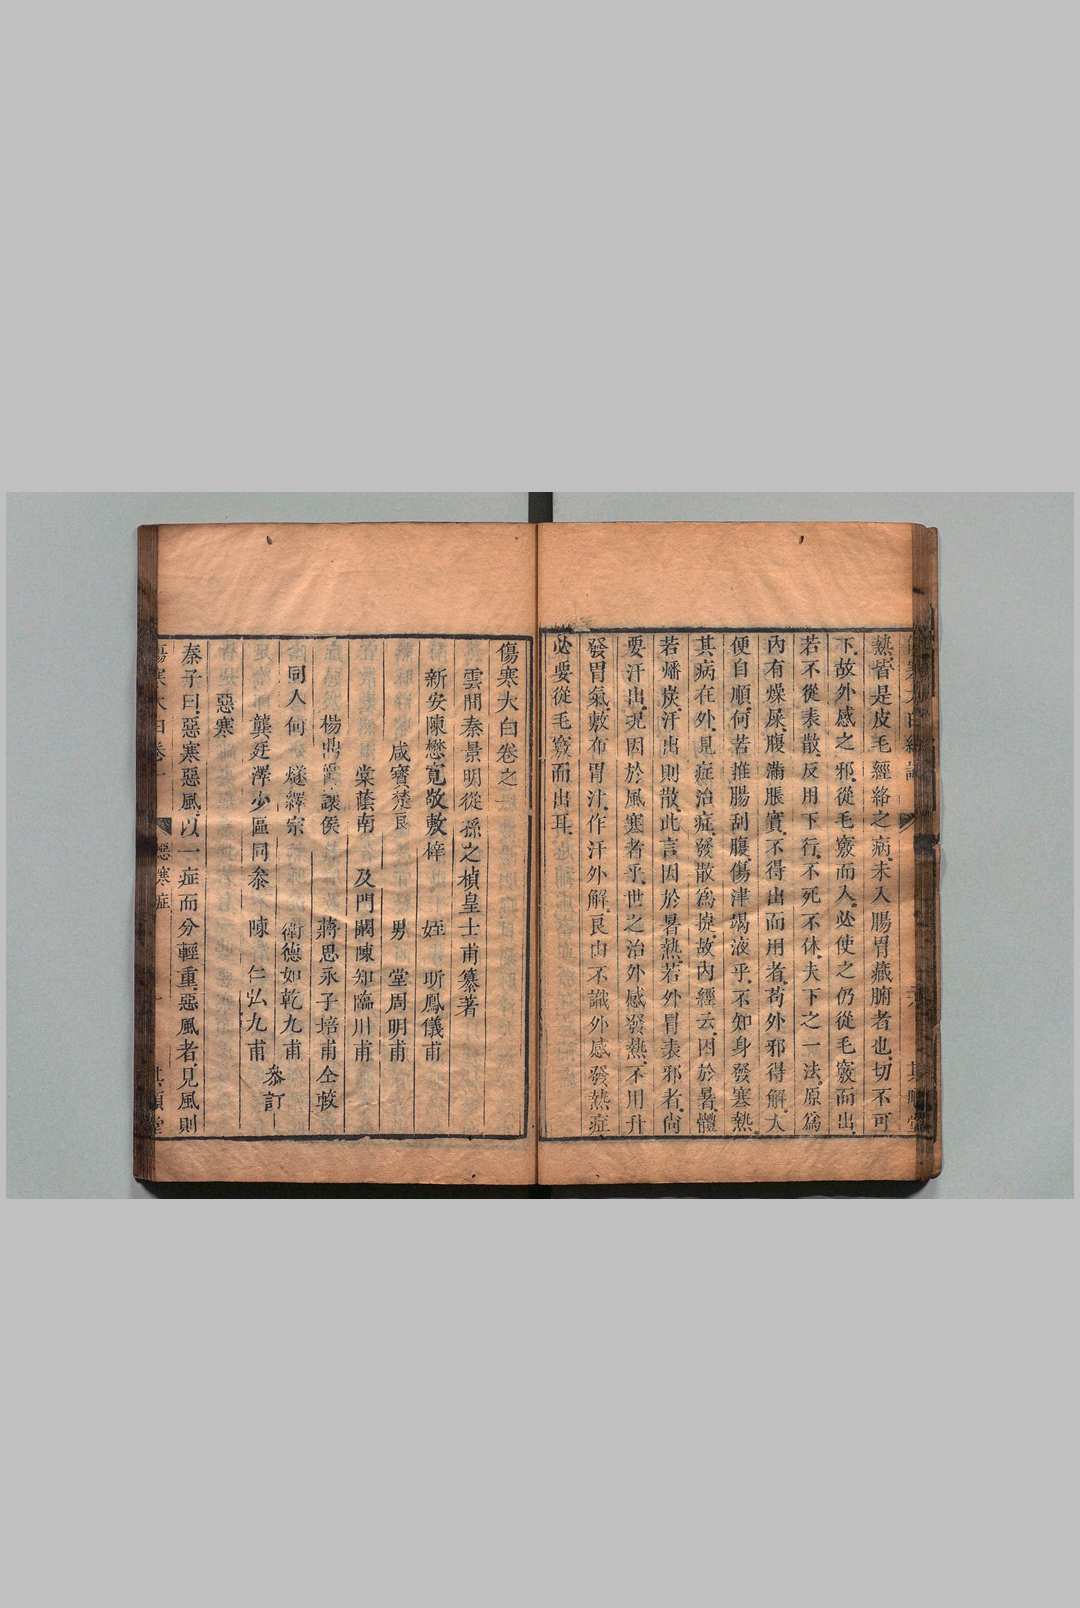 熱皆是皮毛經絡之病未入腸胃藏腑者也切不可
下故外感之邪從毛竅而入必使之仍從毛竅而出
若不從表散反用下行不死不休夫下之一法原爲
內有燥屎腹滿脹實不得出而用者苟外邪得解大
便自順何苦推腸刮腹傷津竭液乎不知身發寒熱
其病在外見症治症發散爲捷故內經云因於暑體
若燔炭汗出則散此言因於暑熱若外冒表邪者尙
要汗出況因於風寒者乎世之治外感發熱不用升
發胃氣敷布胃汁作汗外解良由不識外感發熱症
必要從毛竅而出耳
傷寒大白卷之一
雲間秦景明從孫之楨皇士甫纂著
新安陳懋寬敬敷梓 姪 昕鳳儀甫
咸寶楚良 男 堂周明甫
棠蔭南 及門 閑陳知臨川甫
楊鼎 讓侯 蔣思永子培甫仝較
同人何 燧繹宗 衛德如乾九甫
龔廷澤少區同叅 陳 仁弘九甫 叅訂
惡寒
秦子曰惡寒惡風以一症而分輕重惡風者見風則
傷寒大白卷一 惡寒症 其順堂